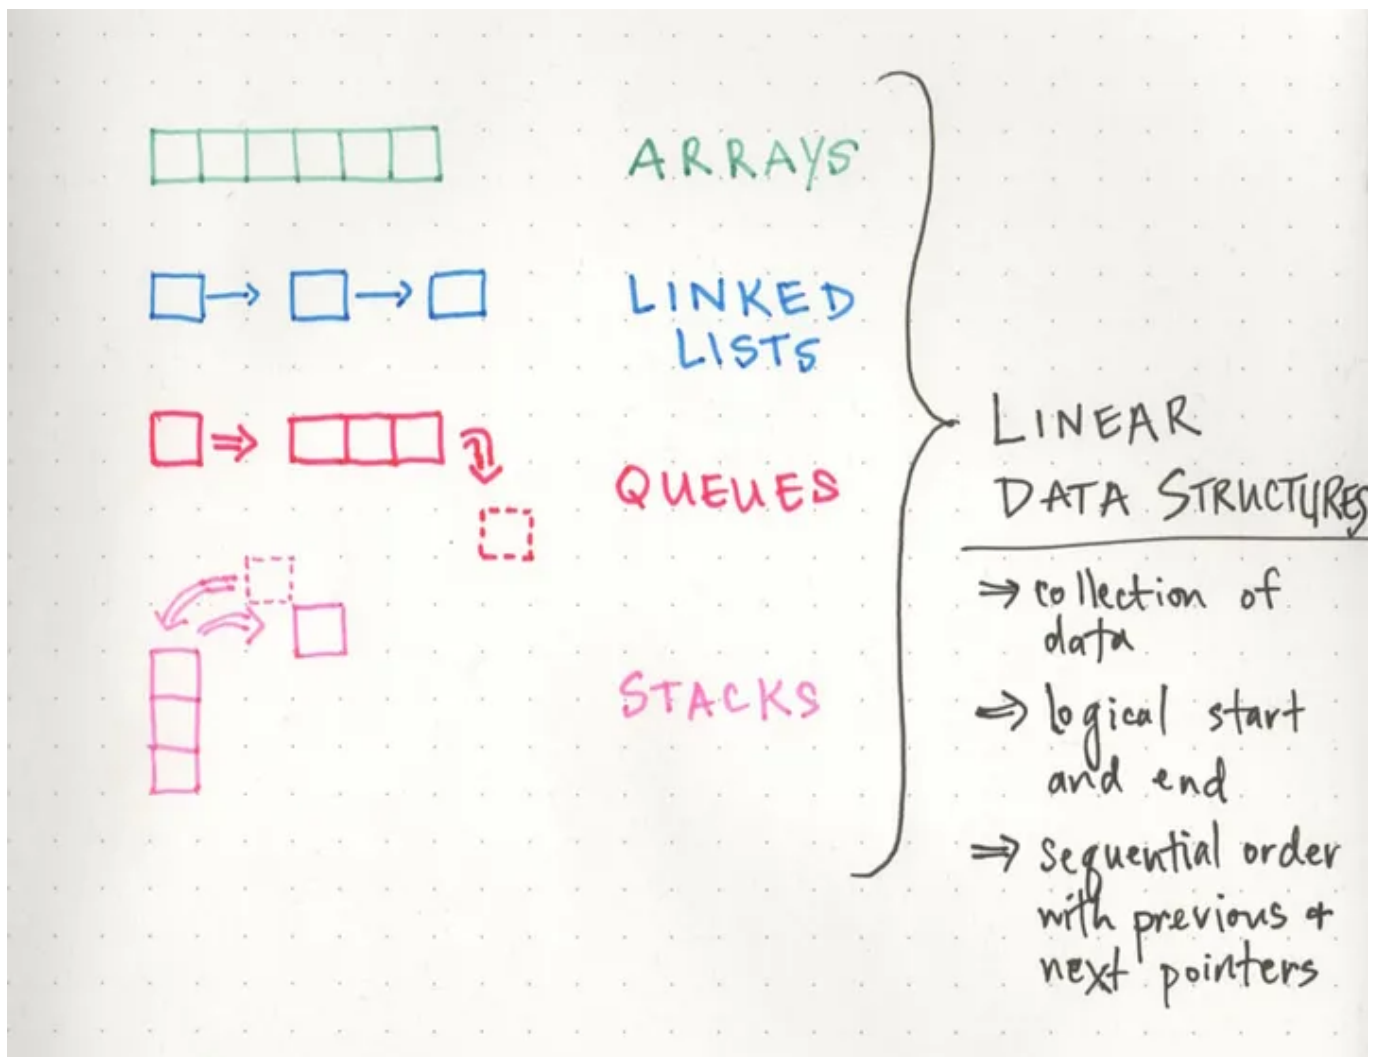 ARRAYS
LINKED
LISTS
QUEUES
STACKS
LINEAR
DATA STRUCTURES
⇒ collection of
data
⇒ logical start
and end
⇒ sequential order
with previous +
next pointers